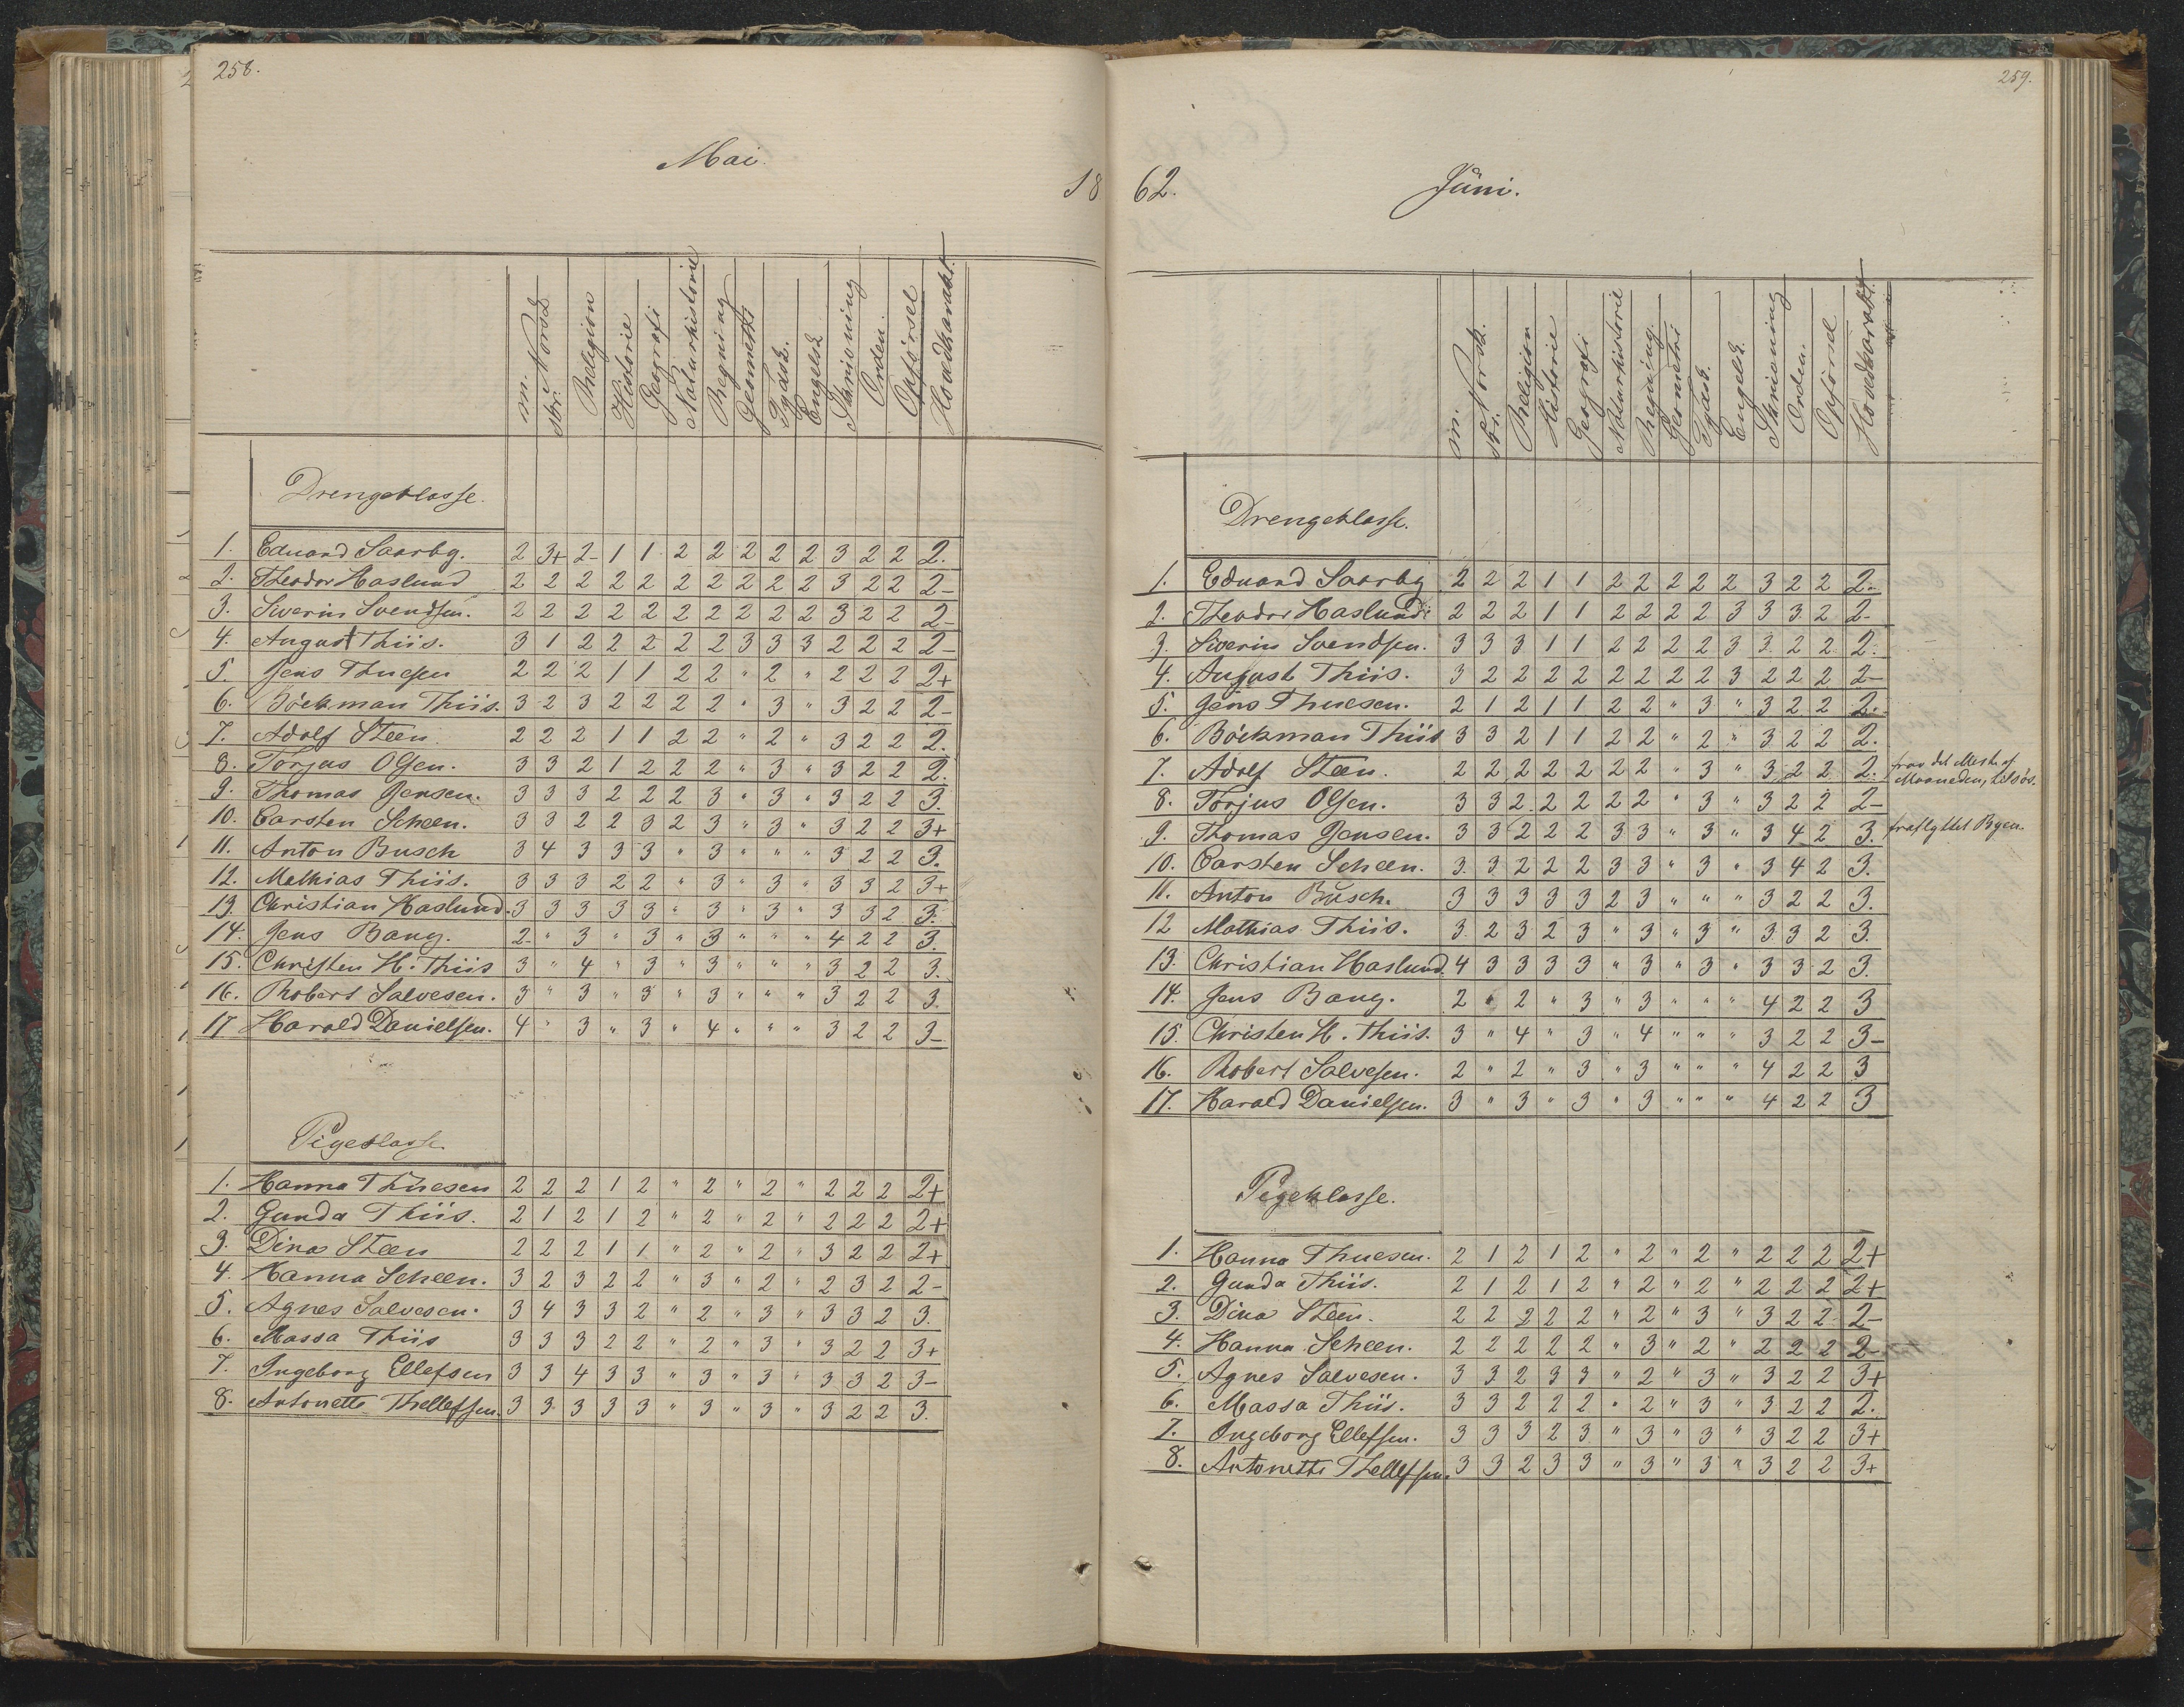 258.
Mai.
18
m. Norsk
skr.
Religion
Historie
Geografi
Naturhistorie
Regning
Geometri
Tysk.
Engelsk
Skrivning
Orden.
Opførsel
Hovedkarakt.
Drengeklasse.
1. Eduard Saarbg. 2 3+ 2- 1 1 2 2 2 2 2 3 2 2 2.
2. Theodor Haslund 2 2 2 2 2 2 2 2 2 2 3 2 2 2-
3. Siverin Svendsen. 2 2 2 2 2 2 2 2 2 2 3 2 2 2-
4. August Thiis. 3 1 2 2 2 2 2 3 3 3 2 2 2 2-
5. Jens Thuesen 2 2 2 1 1 2 2 " 2 " 2 2 2 2+
6. Böckman Thiis. 3 2 3 2 2 2 2 " 3 " 3 2 2 2-
7. Adolf Steen. 2 2 2 1 1 2 2 " 2 " 3 2 2 2.
8. Torjus Olsen. 3 3 2 1 2 2 2 " 3 " 3 2 2 2.
9. Thomas Jensen. 3 3 3 2 2 2 3 " 3 " 3 2 2 3.
10. Carsten Scheen. 3 3 2 2 3 2 3 " 3 " 3 2 2 3+
11. Anton Busch 3 4 3 3 3 " 3 " " " 3 2 2 3.
12. Mathias Thiis. 3 3 3 2 2 " 3 " 3 " 3 3 2 3+
13. Christian Haslund. 3 3 3 3 3 " 3 " 3 " 3 3 2 3.
14. Jens Bang. 2- " 3 " 3 " 3 " " " 4 2 2 3.
15. Christen H. Thiis 3 " 4 " 3 " 3 " " " 3 2 2 3.
16. Robert Salvesen. 3 " 3 " 3 " 3 " " " 3 2 2 3.
17 Harald Danielsen. 4 " 3 " 3 " 4 " " " 3 2 2 3-
Pigeklasse
1. Hanna Thuesen 2 2 2 1 2 " 2 " 2 " 2 2 2 2+
2. Gunda Thiis. 2 1 2 1 2 " 2 " 2 " 2 2 2 2+
3. Dina Steen 2 2 2 1 1 " 2 " 2 " 3 2 2 2+
4. Hanna Scheen. 3 2 3 2 2 " 3 " 2 " 2 3 2 2-
5. Agnes Salvesen. 3 4 3 3 2 " 2 " 3 " 3 3 2 3.
6. Massa Thiis 3 3 3 2 2 " 2 " 3 " 3 2 2 3+
7. Ingeborg Ellefsen 3 3 4 3 3 " 3 " 3 " 3 3 2 3-
8. Antonette Thellefsen. 3 3 3 3 3 " 3 " 3 " 3 2 2 3.
259.
62.
Juni.
m. Norsk.
skr.
Religion
Historie
Geografi
Naturhistorie
Regning.
Geometri
Tysk.
Engelsk.
Skrivning
Orden.
Opførsel
Hovedkarakt.
Drengeklasse.
1. Eduard Saarbg 2 2 2 1 1 2 2 2 2 2 3 2 2 2.
2. Theodor Haslund 2 2 2 1 1 2 2 2 2 3 3 3 2 2-
3. Siverin Svendsen. 3 3 3 1 1 2 2 2 2 3 3 2 2 2.
4. August Thiis. 3 2 2 2 2 2 2 2 2 3 2 2 2 2-
5. Jens Thuesen. 2 1 2 1 1 2 2 " 3 " 3 2 2 2.
6. Böckman Thiis 3 3 2 1 1 2 2 " 2 " 3 2 2 2.
7. Adolf Steen. 2 2 2 2 2 2 2 " 3 " 3 2 2 2. frav det Meste af
Maaneden, tilsøs.
8. Torjus Olsen. 3 3 2 2 2 2 2 " 3 " 3 2 2 2-
9. Thomas Jensen. 3 3 2 2 2 3 3 " 3 " 3 4 2 3. fraflyttet Byen.
10. Carsten Scheen. 3 3 2 2 2 3 3 " 3 " 3 4 2 3.
11. Anton Busch. 3 3 3 3 3 2 3 " " " 3 2 2 3.
12 Mathias Thiis. 3 2 3 2 3 " 3 " 3 " 3 3 2 3.
13. Christian Haslund. 4 3 3 3 3 " 3 " 3 " 3 3 2 3.
14. Jens Bang. 2 " 2 " 3 " 3 " " " 4 2 2 3
15. Christen H. Thiis. 3 " 4 " 3 " 4 " " " 3 2 2 3-
16. Robert Salvesen. 2 " 2 " 3 " 3 " " " 4 2 2 3
17. Harald Danielsen. 3 " 3 " 3 " 3 " " " 4 2 2 3
Pigeklasse.
1. Hanna Thuesen. 2 1 2 1 2 " 2 " 2 " 2 2 2 2+
2. Gunda Thiis. 2 1 2 1 2 " 2 " 2 " 2 2 2 2+
3. Dina Steen. 2 2 2 2 2 " 2 " 3 " 3 2 2 2-
4. Hanna Scheen. 2 2 2 2 2 " 3 " 2 " 2 2 2 2-
5. Agnes Salvesen. 3 3 2 3 3 " 2 " 3 " 3 2 2 3+
6. Massa Thiis. 3 3 2 2 2 " 2 " 3 " 3 2 2 2.
7. Ingeborg Ellefsen. 3 3 3 2 3 " 3 " 3 " 3 2 2 3+
8. Antonette Thellefsen. 3 3 2 3 3 " 3 " 3 " 3 2 2 3+